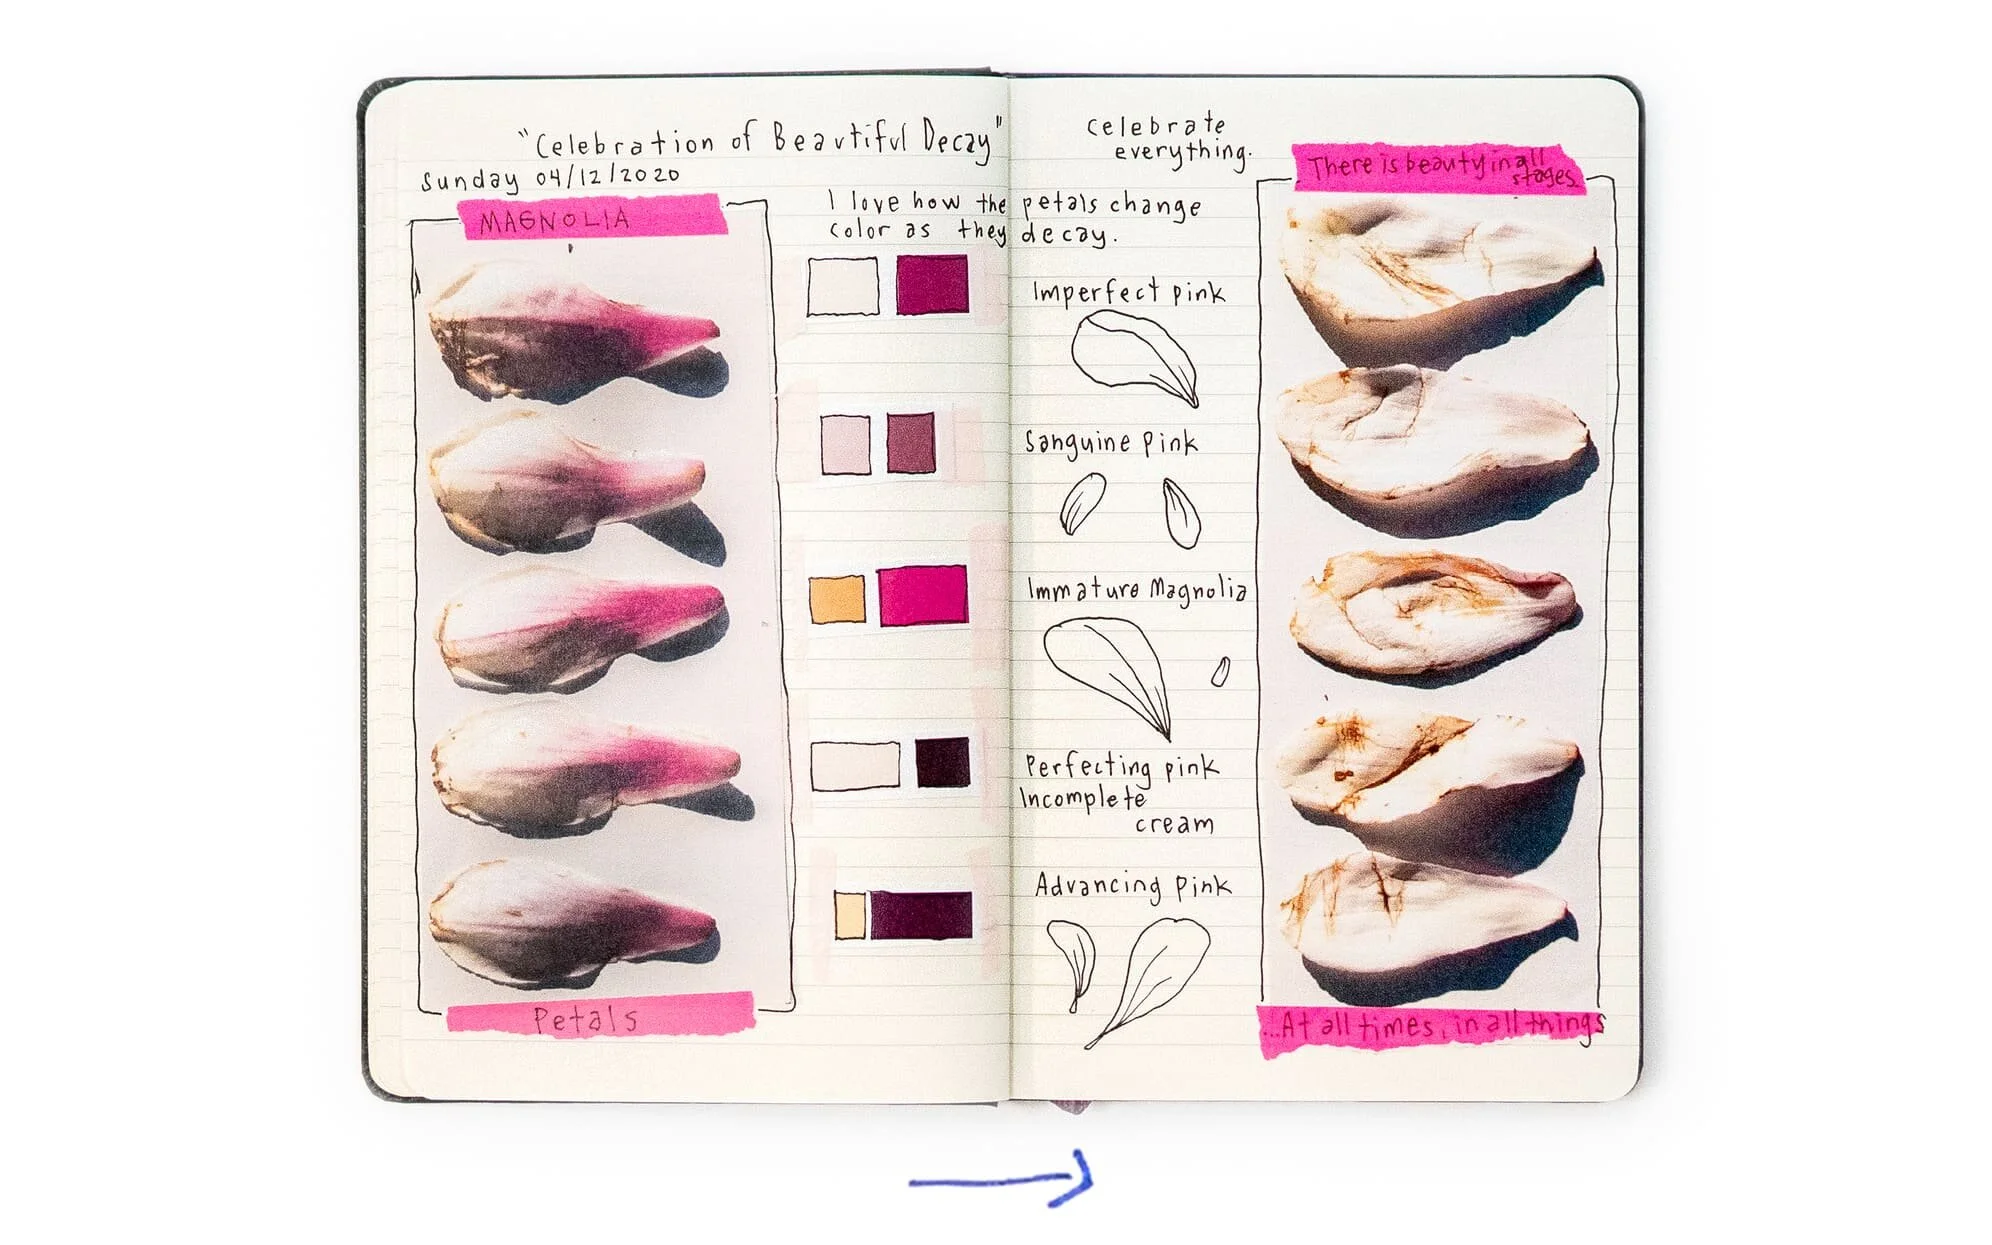 "Celebration of Beautiful Decay"
Sunday 04/12/2020
MAGNOLIA
Petals
I love how the petals change
color as they decay.
Celebrate
everything.
Imperfect pink
Sanguine pink
Immature Magnolia
Perfecting pink
Incomplete
cream
Advancing pink
There is beauty in all
stages
...At all times, in all things